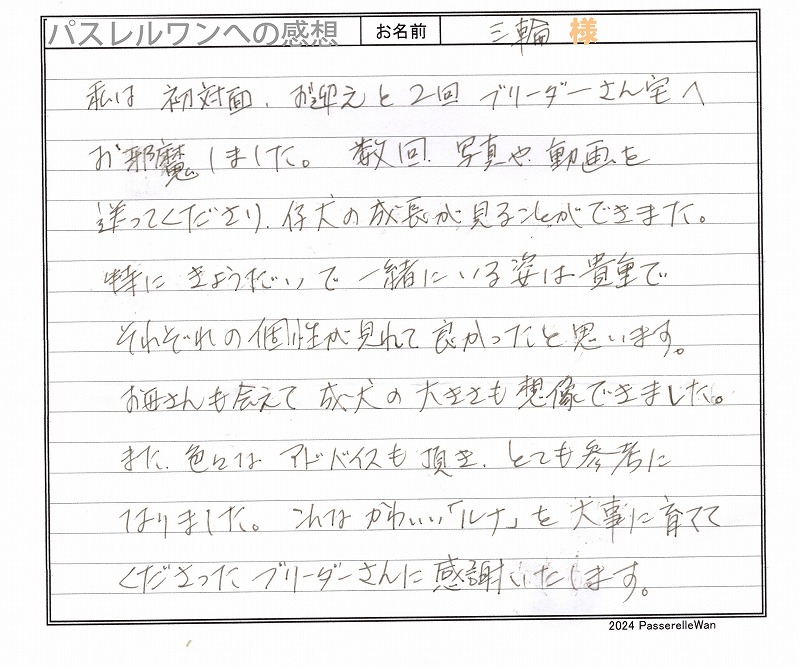 パスレルワンへの感想 お名前 三輪 様
私は 初対面、お迎えと2回 ブリーダーさん宅へ
お邪魔しました。 数回、写真や動画を
送ってくださり、仔犬の成長が見ることができました。
特に きょうだいで 一緒にいる姿は貴重で
それぞれの個性が見れて良かったと思います。
お母さんも会えて 成犬の大きさも想像できました。
また、色々な アドバイスも頂き、とても参考に
なりました。 こんな かわいい「ルナ」を大事に育てて
くださった ブリーダーさんに感謝いたします。
2024 PasserelleWan